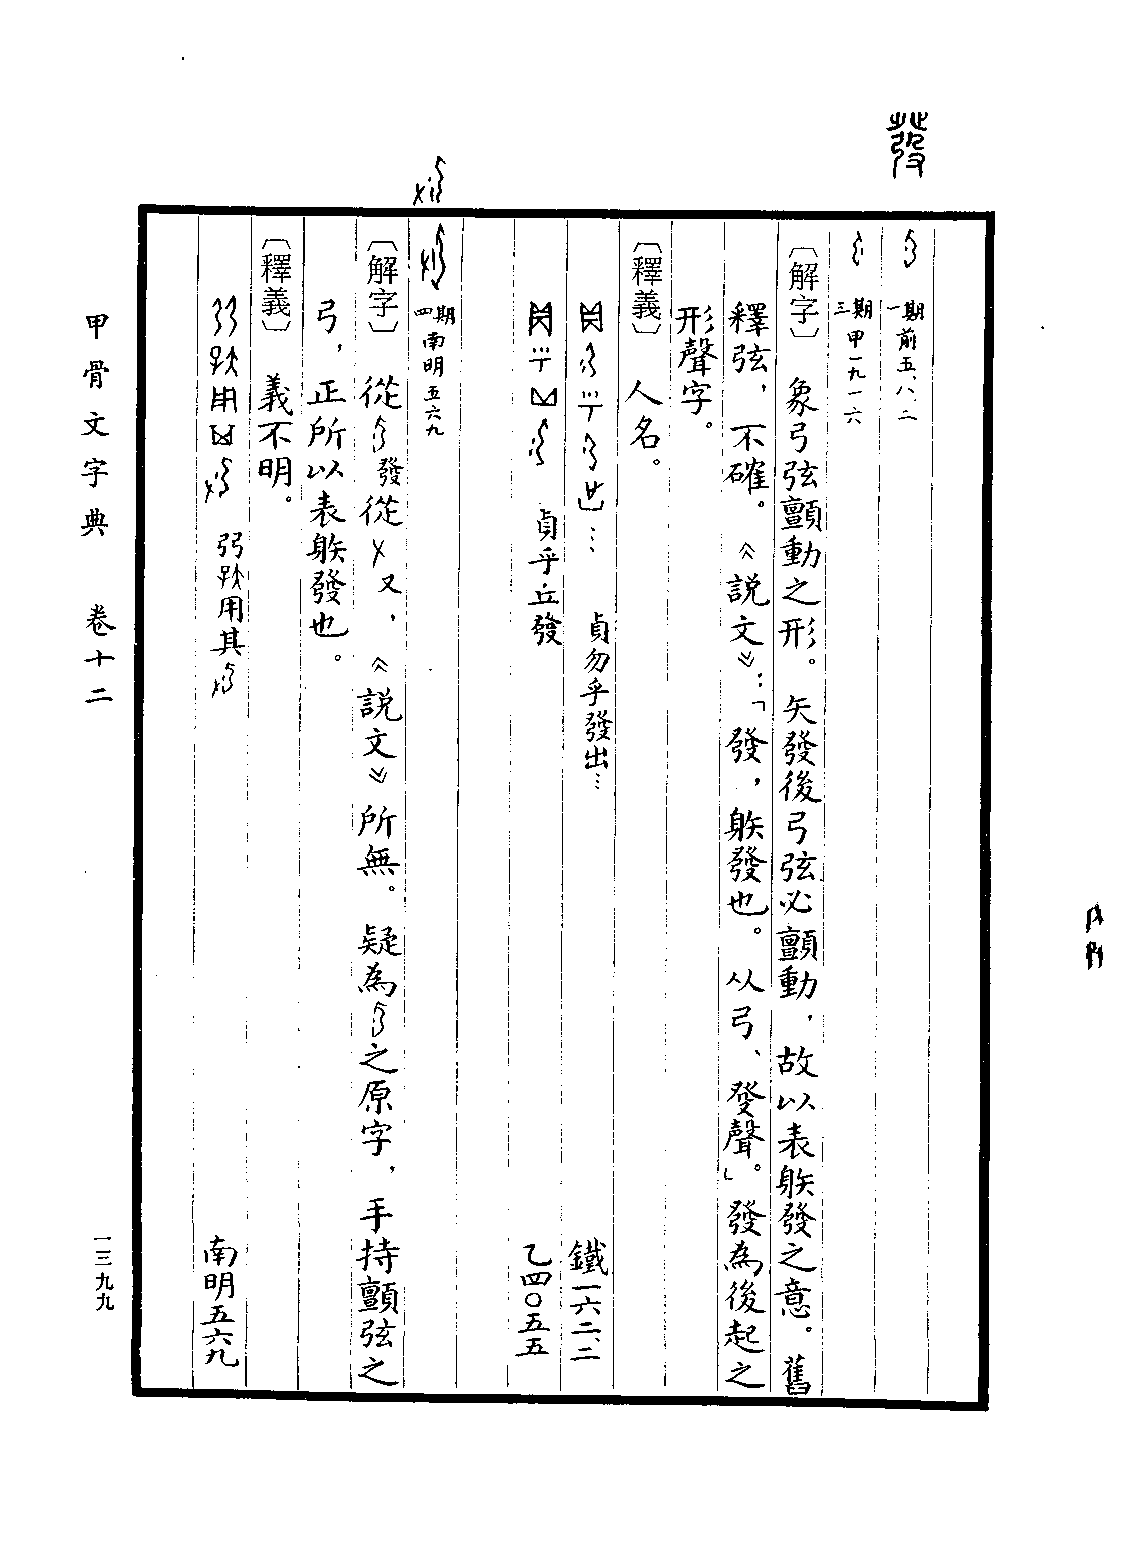 發
一期 前五、八、二
三期 甲一九一六
〔解字〕 象弓弦顫動之形。矢發後弓弦必顫動，故以表䠶發之意。舊
釋弦，不確。《說文》：「發，䠶發也。从弓、癹聲」。發為後起之
形聲字。
〔釋義〕 人名。
貞勿乎發出… 鐵一六二、二
貞乎丘發 乙四〇五五
四期 南明五六九
〔解字〕 從 發從 又，《說文》所無。疑為 之原字，手持顫弦之
弓，正所以表䠶發也。
〔釋義〕 義不明。
用其 南明五六九
甲骨文字典 卷十二 一三九九